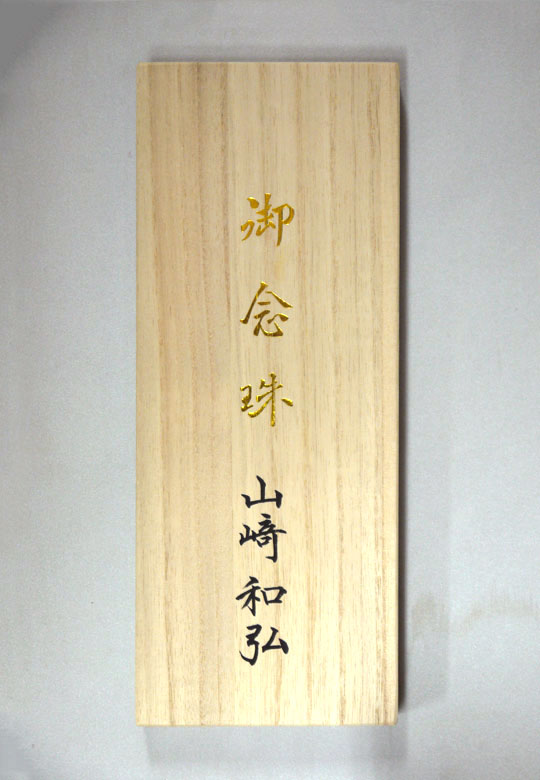 御念珠山﨑和弘